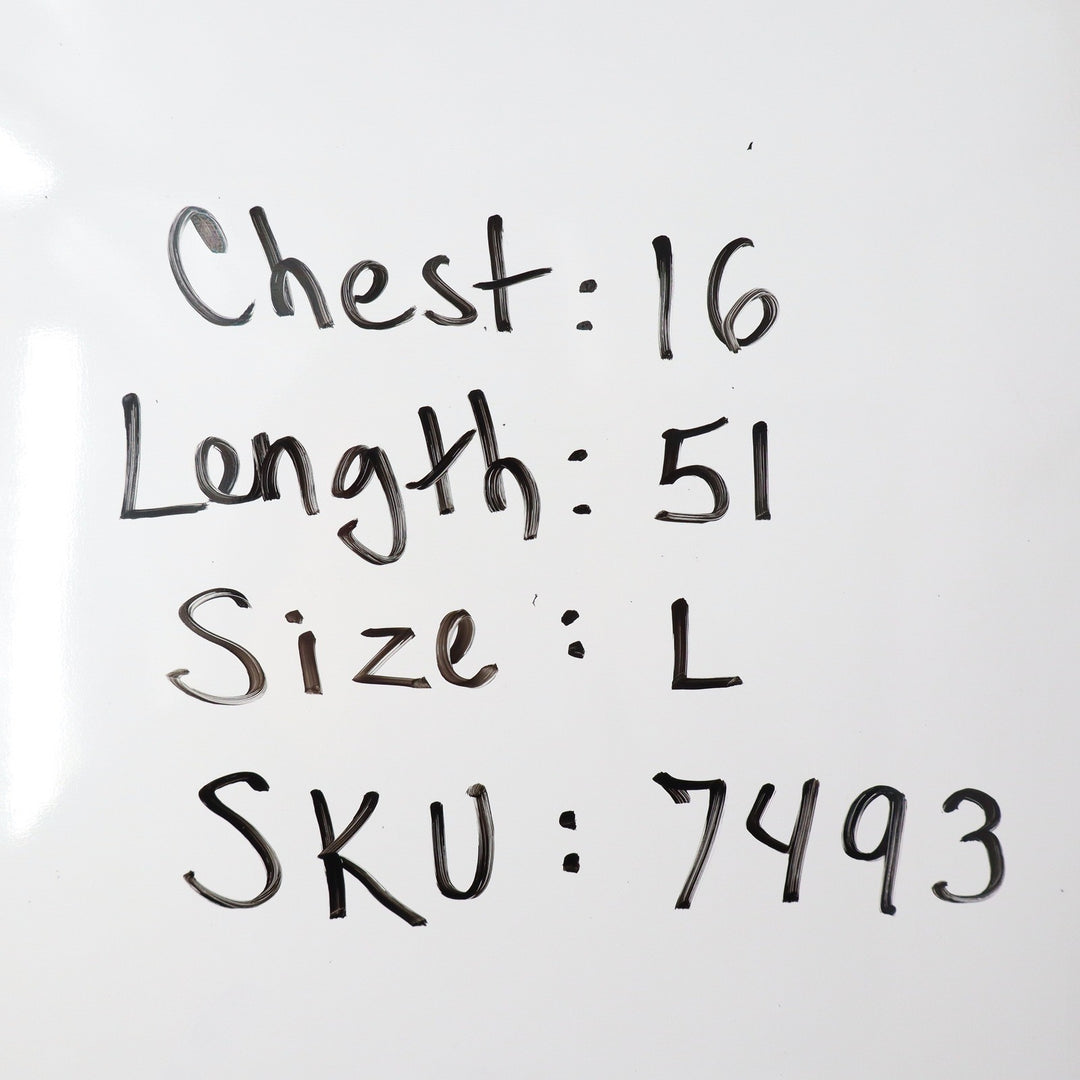 Chest: 16
Length: 51
Size: L
SKU: 7493